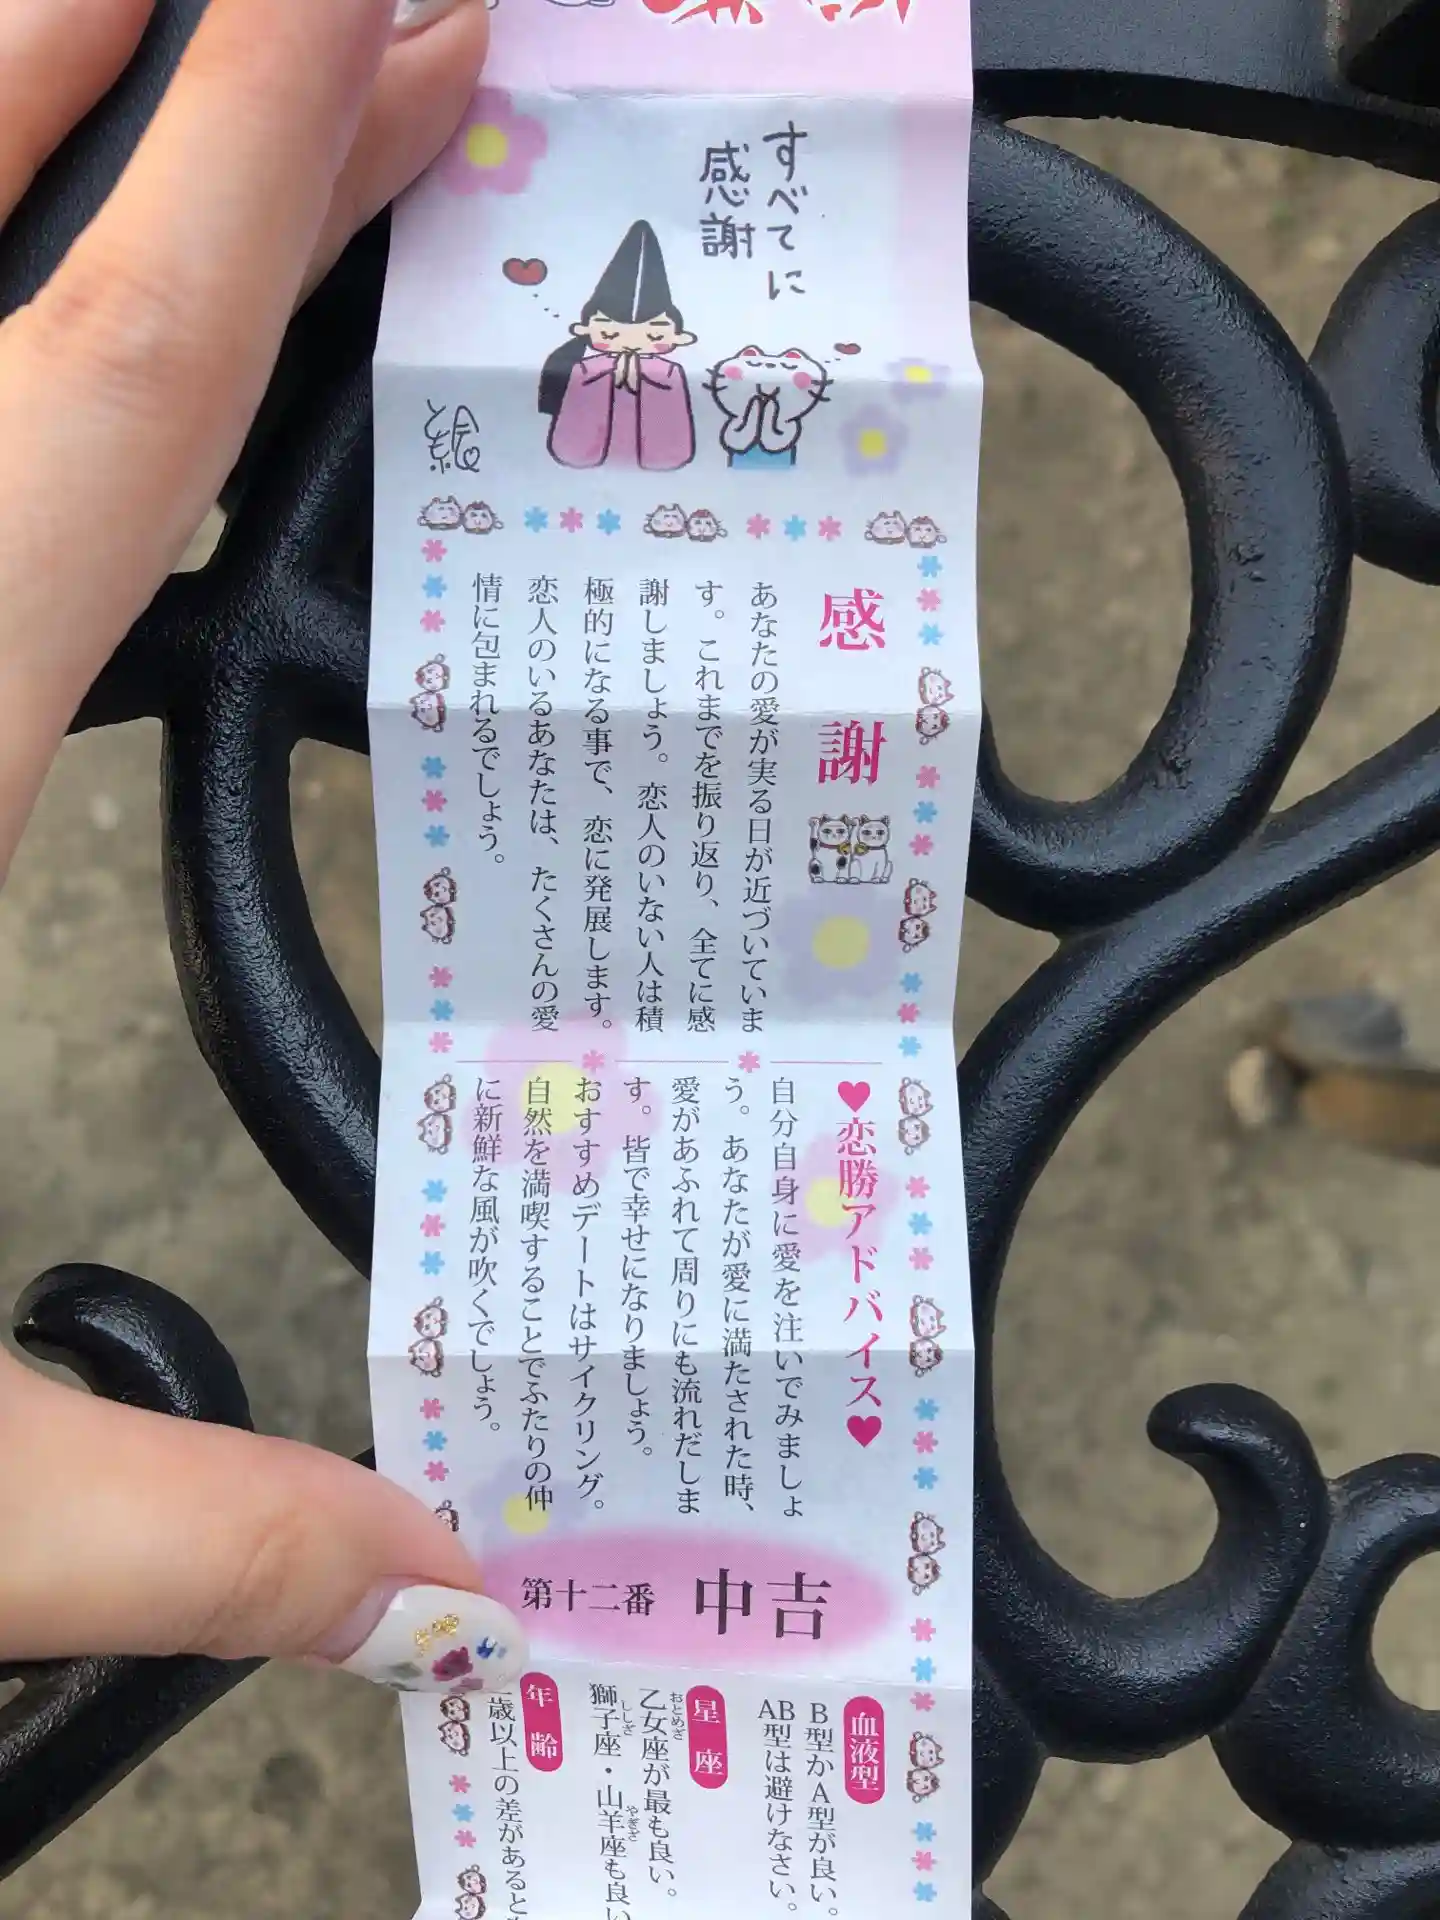 すべてに
感謝
感謝
あなたの愛が実る日が近づいていま
す。これまでを振り返り、全てに感
謝しましょう。恋人のいない人は積
極的になる事で、恋に発展します。
恋人のいるあなたは、たくさんの愛
情に包まれるでしょう。
♥恋勝アドバイス♥
自分自身に愛を注いでみましょ
う。あなたが愛に満たされた時、
愛があふれて周りにも流れだしま
す。皆で幸せになりましょう。
おすすめデートはサイクリング。
自然を満喫することでふたりの仲
に新鮮な風が吹くでしょう。
第十二番 中吉
血液型
B型かA型が良い。
AB型は避けなさい。
星座
乙女座が最も良い。
おとめざ
獅子座・山羊座も良い
ししざ やぎざ
年齢
歳以上の差があると